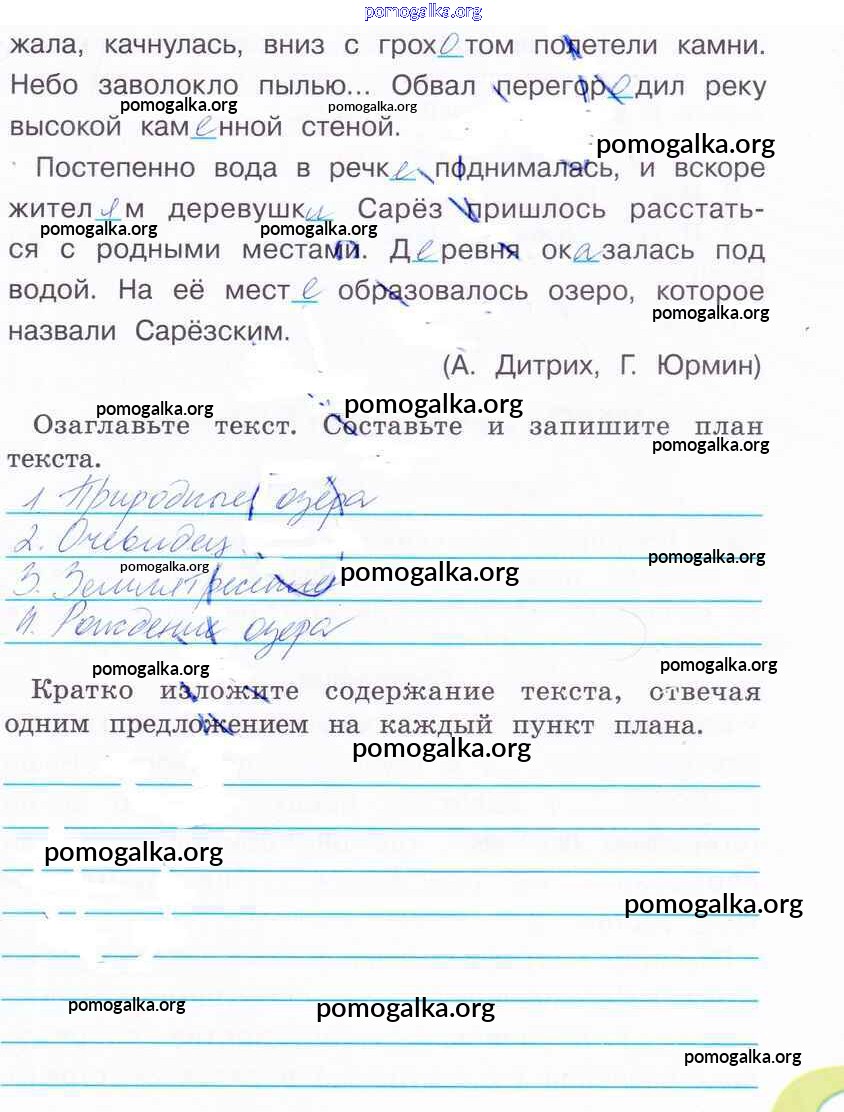 pomogalka.org
жала, качнулась, вниз с грохотом полетели камни.
Небо заволокло пылью... Обвал перегородил реку
pomogalka.org pomogalka.org
высокой каменной стеной.
pomogalka.org
Постепенно вода в речке поднималась, и вскоре
жителям деревушки Сарёз пришлось расстать-
pomogalka.org pomogalka.org
ся с родными местами. Деревня оказалась под
водой. На её месте образовалось озеро, которое
pomogalka.org
назвали Сарёзским.
(А. Дитрих, Г. Юрмин)
pomogalka.org pomogalka.org
Озаглавьте текст. Составьте и запишите план
pomogalka.org
текста.
1 Природные озёра
2. Очевидец.
pomogalka.org
pomogalka.org pomogalka.org
3. Землятресение
4. Рождение озера
pomogalka.org pomogalka.org
Кратко изложите содержание текста, отвечая
одним предложением на каждый пункт плана.
pomogalka.org
pomogalka.org
pomogalka.org
pomogalka.org pomogalka.org
pomogalka.org